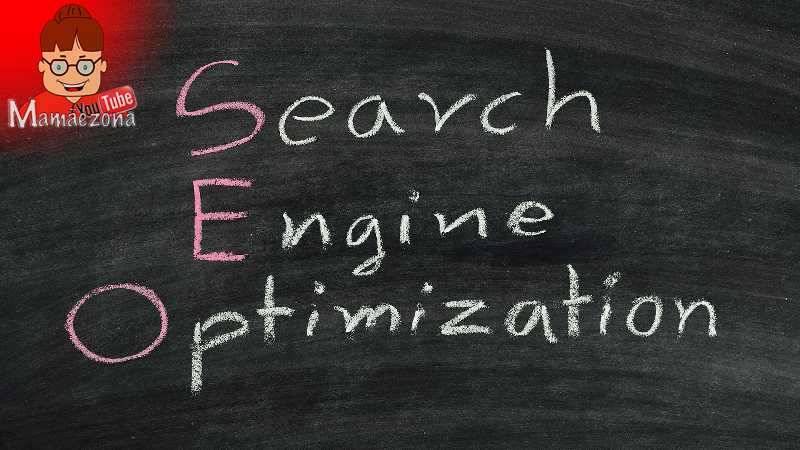 YouTube
Mamaezona
Search
Engine
Optimization